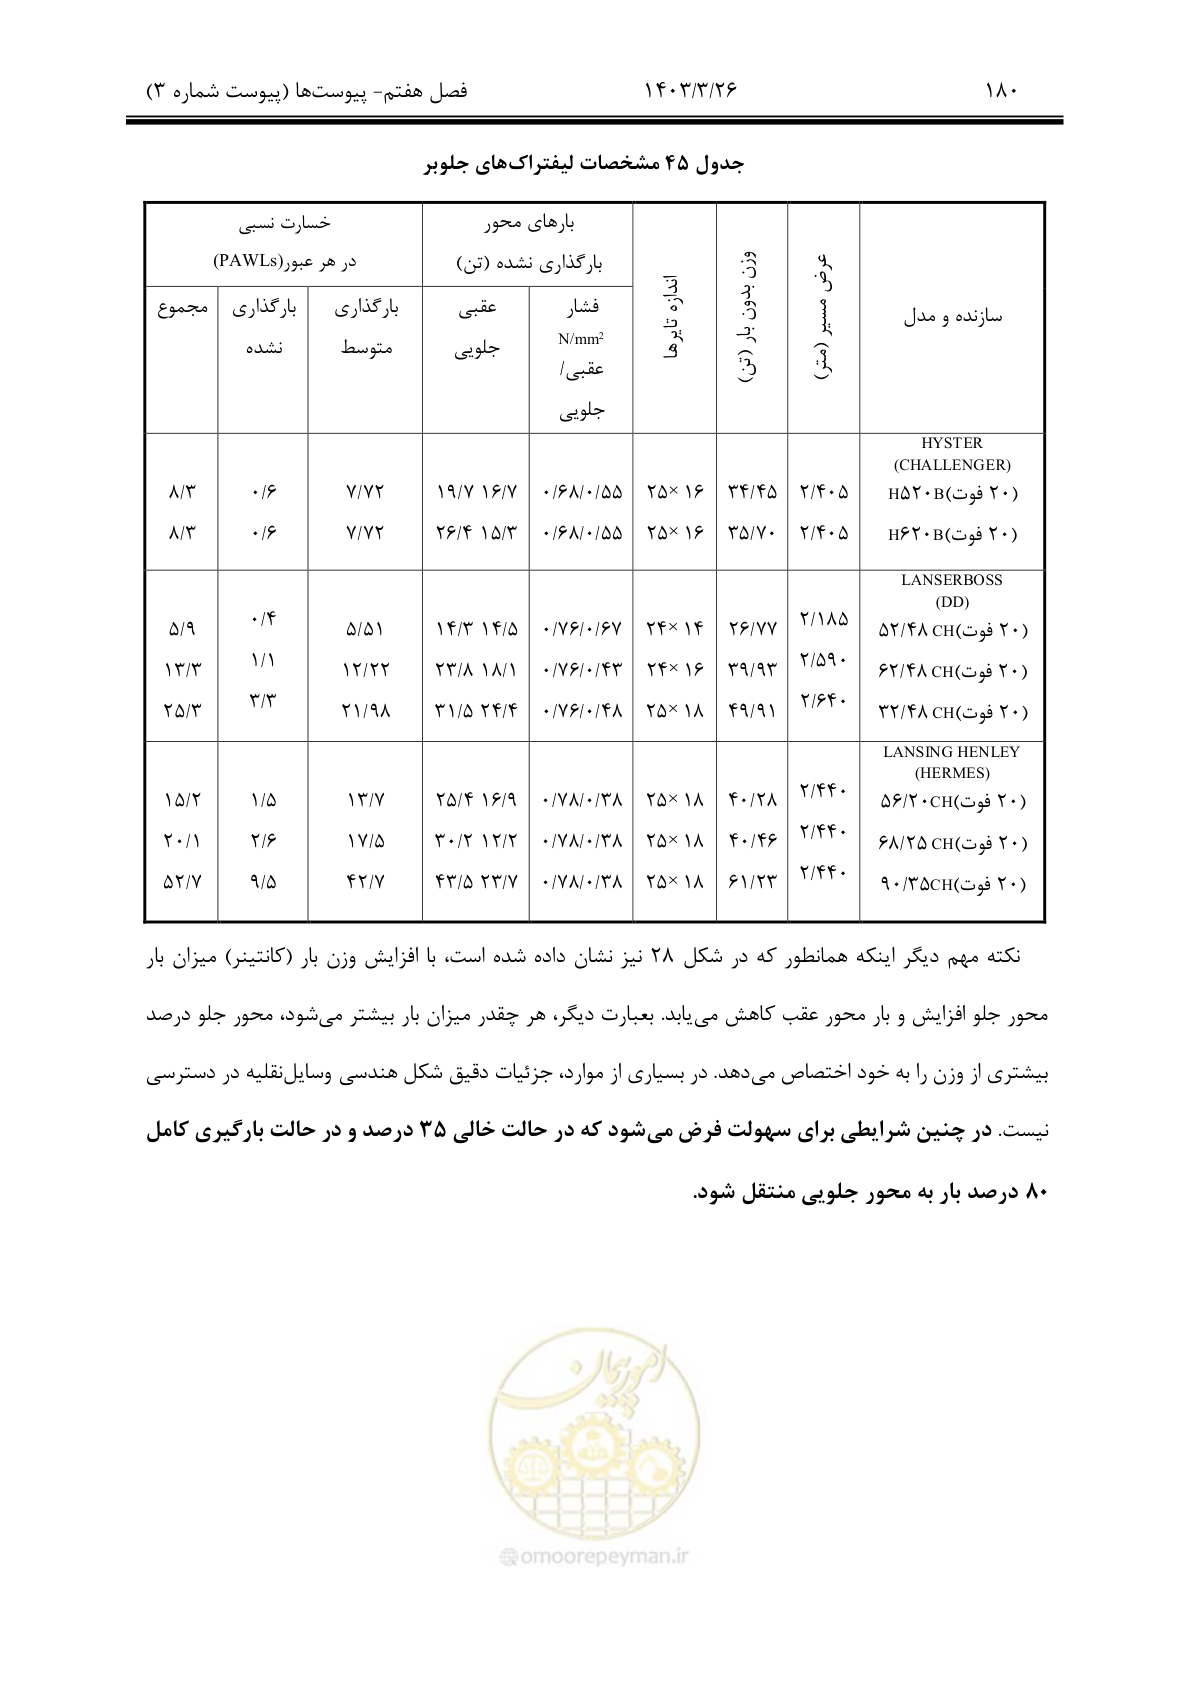 ۱۸۰ ۱۴۰۳/۳/۲۶ فصل هفتم- پیوست‌ها (پیوست شماره ۳)
جدول ۴۵ مشخصات لیفتراک‌های جلوبر
سازنده و مدل
عرض مسیر (متر)
وزن بدون بار (تن)
اندازه تایرها
بارهای محور
بارگذاری نشده (تن)
خسارت نسبی
در هر عبور(PAWLs)
فشار
N/mm²
عقبی/
جلویی
عقبی
جلویی
بارگذاری
متوسط
بارگذاری
نشده
مجموع
HYSTER
(CHALLENGER)
H۵۲۰B(۲۰ فوت) ۲/۴۰۵ ۳۴/۴۵ ۲۵× ۱۶ ۰/۶۸/۰/۵۵ ۱۹/۷ ۱۶/۷ ۷/۷۲ ۰/۶ ۸/۳
H۶۲۰B(۲۰ فوت) ۲/۴۰۵ ۳۵/۷۰ ۲۵× ۱۶ ۰/۶۸/۰/۵۵ ۲۶/۴ ۱۵/۳ ۷/۷۲ ۰/۶ ۸/۳
LANSERBOSS
(DD)
۵۲/۴۸ CH(۲۰ فوت) ۲/۱۸۵ ۲۶/۷۷ ۲۴× ۱۴ ۰/۷۶/۰/۶۷ ۱۴/۳ ۱۴/۵ ۵/۵۱ ۰/۴ ۵/۹
۶۲/۴۸ CH(۲۰ فوت) ۲/۵۹۰ ۳۹/۹۳ ۲۴× ۱۶ ۰/۷۶/۰/۴۳ ۲۳/۸ ۱۸/۱ ۱۲/۲۲ ۱/۱ ۱۳/۳
۳۲/۴۸ CH(۲۰ فوت) ۲/۶۴۰ ۴۹/۹۱ ۲۵× ۱۸ ۰/۷۶/۰/۴۸ ۳۱/۵ ۲۴/۴ ۲۱/۹۸ ۳/۳ ۲۵/۳
LANSING HENLEY
(HERMES)
۵۶/۲۰CH(۲۰ فوت) ۲/۴۴۰ ۴۰/۲۸ ۲۵× ۱۸ ۰/۷۸/۰/۳۸ ۲۵/۴ ۱۶/۹ ۱۳/۷ ۱/۵ ۱۵/۲
۶۸/۲۵ CH(۲۰ فوت) ۲/۴۴۰ ۴۰/۴۶ ۲۵× ۱۸ ۰/۷۸/۰/۳۸ ۳۰/۲ ۱۲/۲ ۱۷/۵ ۲/۶ ۲۰/۱
۹۰/۳۵CH(۲۰ فوت) ۲/۴۴۰ ۶۱/۲۳ ۲۵× ۱۸ ۰/۷۸/۰/۳۸ ۴۳/۵ ۲۳/۷ ۴۲/۷ ۹/۵ ۵۲/۷
نکته مهم دیگر اینکه همانطور که در شکل ۲۸ نیز نشان داده شده است، با افزایش وزن بار (کانتینر) میزان بار
محور جلو افزایش و بار محور عقب کاهش می‌یابد. بعبارت دیگر، هر چقدر میزان بار بیشتر می‌شود، محور جلو درصد
بیشتری از وزن را به خود اختصاص می‌دهد. در بسیاری از موارد، جزئیات دقیق شکل هندسی وسایل‌نقلیه در دسترسی
نیست. در چنین شرایطی برای سهولت فرض می‌شود که در حالت خالی ۳۵ درصد و در حالت بارگیری کامل
۸۰ درصد بار به محور جلویی منتقل شود.
امور پیمان
@omoorepeyman.ir